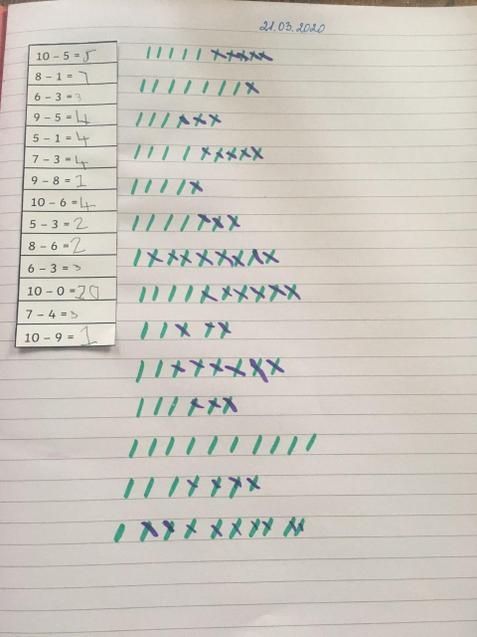 21.03.2020
10 - 5 = 5
8 - 1 = 7
6 - 3 = 3
9 - 5 = 4
5 - 1 = 4
7 - 3 = 4
9 - 8 = 1
10 - 6 = 4
5 - 3 = 2
8 - 6 = 2
6 - 3 = 3
10 - 0 = 20
7 - 4 = 3
10 - 9 = 1